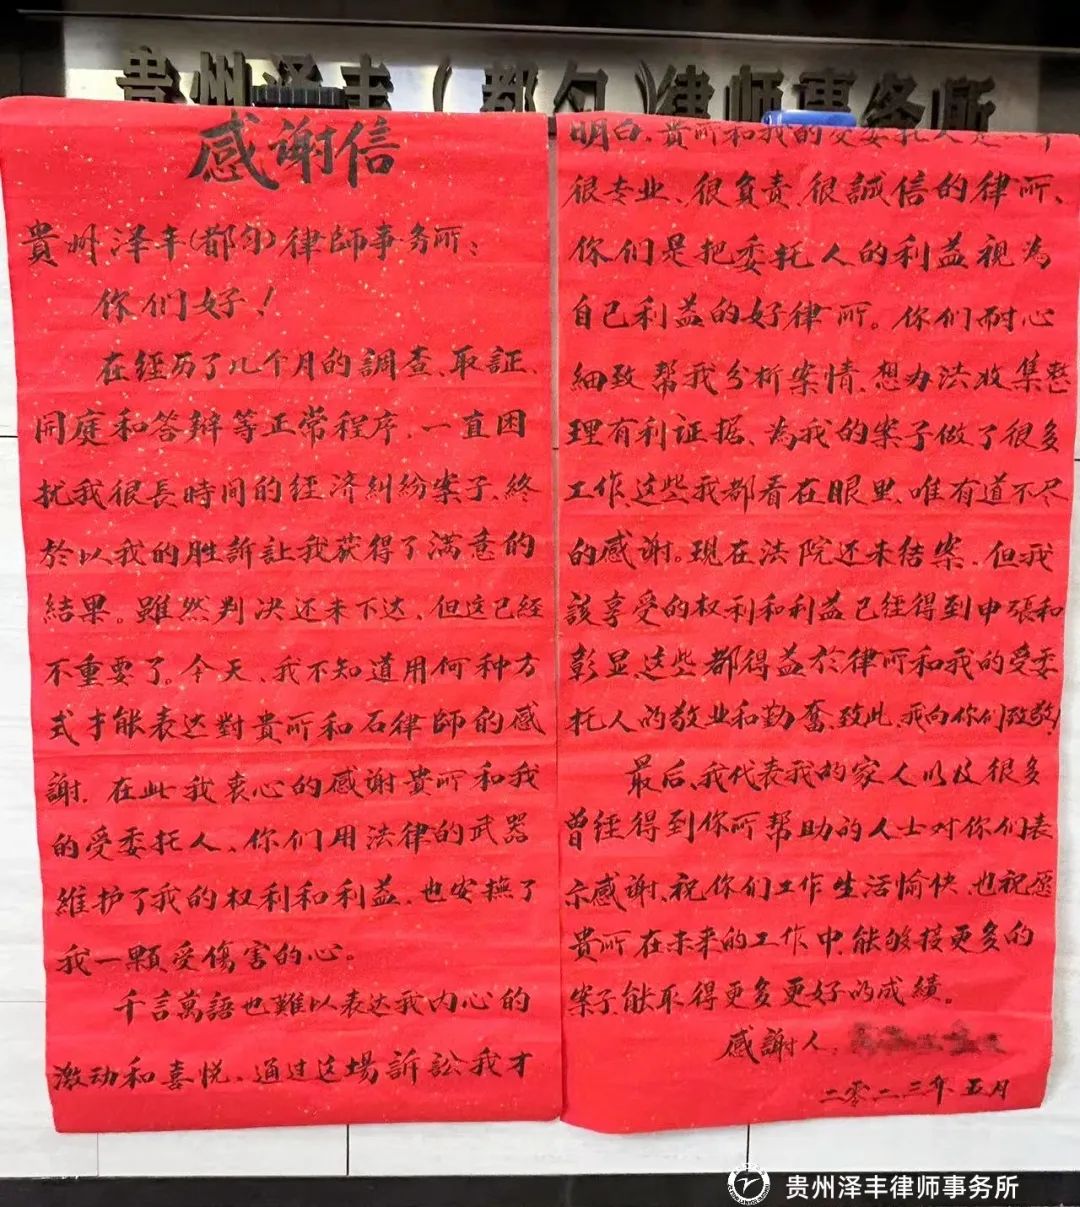 贵州泽丰（都匀）律师事务所
感谢信
貴州泽丰(都匀)律師事务所：
你们好！
在经历了几个月的調查、取証、
開庭和答辩等正常程序，一直困
扰我很長時间的经济糾纷案子，終
於以我的胜訴让我获得了满意的
结果。雖然判决还未下达，但这已经
不重要了。今天、我不知道用何种方
式才能表达對貴所和石律師的感
謝，在此我衷心的感谢貴所和我
的受委托人、你们用法律的武器
維护了我的权利和利益，也安撫了
我一顆受傷害的心。
千言萬語也難以表达我内心的
激动和喜悦、通过这場訴訟我才
明白，貴所和我的受委托人是一个
很专业、很負责、很誠信的律所、
你们是把委托人的利益視為
自己利益的好律所。你们耐心
細致帮我分析案情，想办法收集整
理有利证据、為我的案子做了很多
工作，这些我都看在眼里、唯有道不尽
的感谢。现在法院还未结案，但我
該享受的权利和利益已经得到申張和
彰显，这些都得益於律所和我的受委
托人的敬业和勤奮，致此，我向你们致敬！
最后、我代表我的家人以及很多
曾经得到你所帮助的人士对你们表
示感谢、祝你们工作生活愉快，也祝愿
貴所在未来的工作中，能够接更多的
案子，能取得更多更好的成績。
感謝人：
二零二三年五月
贵州泽丰律师事务所